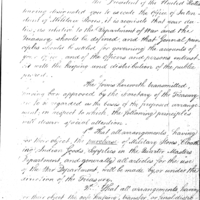 President of the United States
having designated you to execute the Office of Superinten-
dent of Military Stores, it is requisite that your du-
ties, in relation to the Department of War and the
Treasury should be defined, and that general prin-
ciples should be settled for governing the accounts of
you of — and of the officers and persons entrusted
with the keeping and distribution of the public
The forms herewith transmitted,
having her approved by the Secretary of the Treasury
to be regarded as the basis of the proposed arrange-
ment, in respect to which, the following principles
will deserve special attention.
1st That all arrangements, having
in their object the purchase of Military Stores, Cloath-
ing, Indian Goods, Supplies in the Quarter Masters
Department, and generally all articles for the use
of the War Department, will be made by or under the
direction of the Treasury.
2d That all arrangements having
in their object the